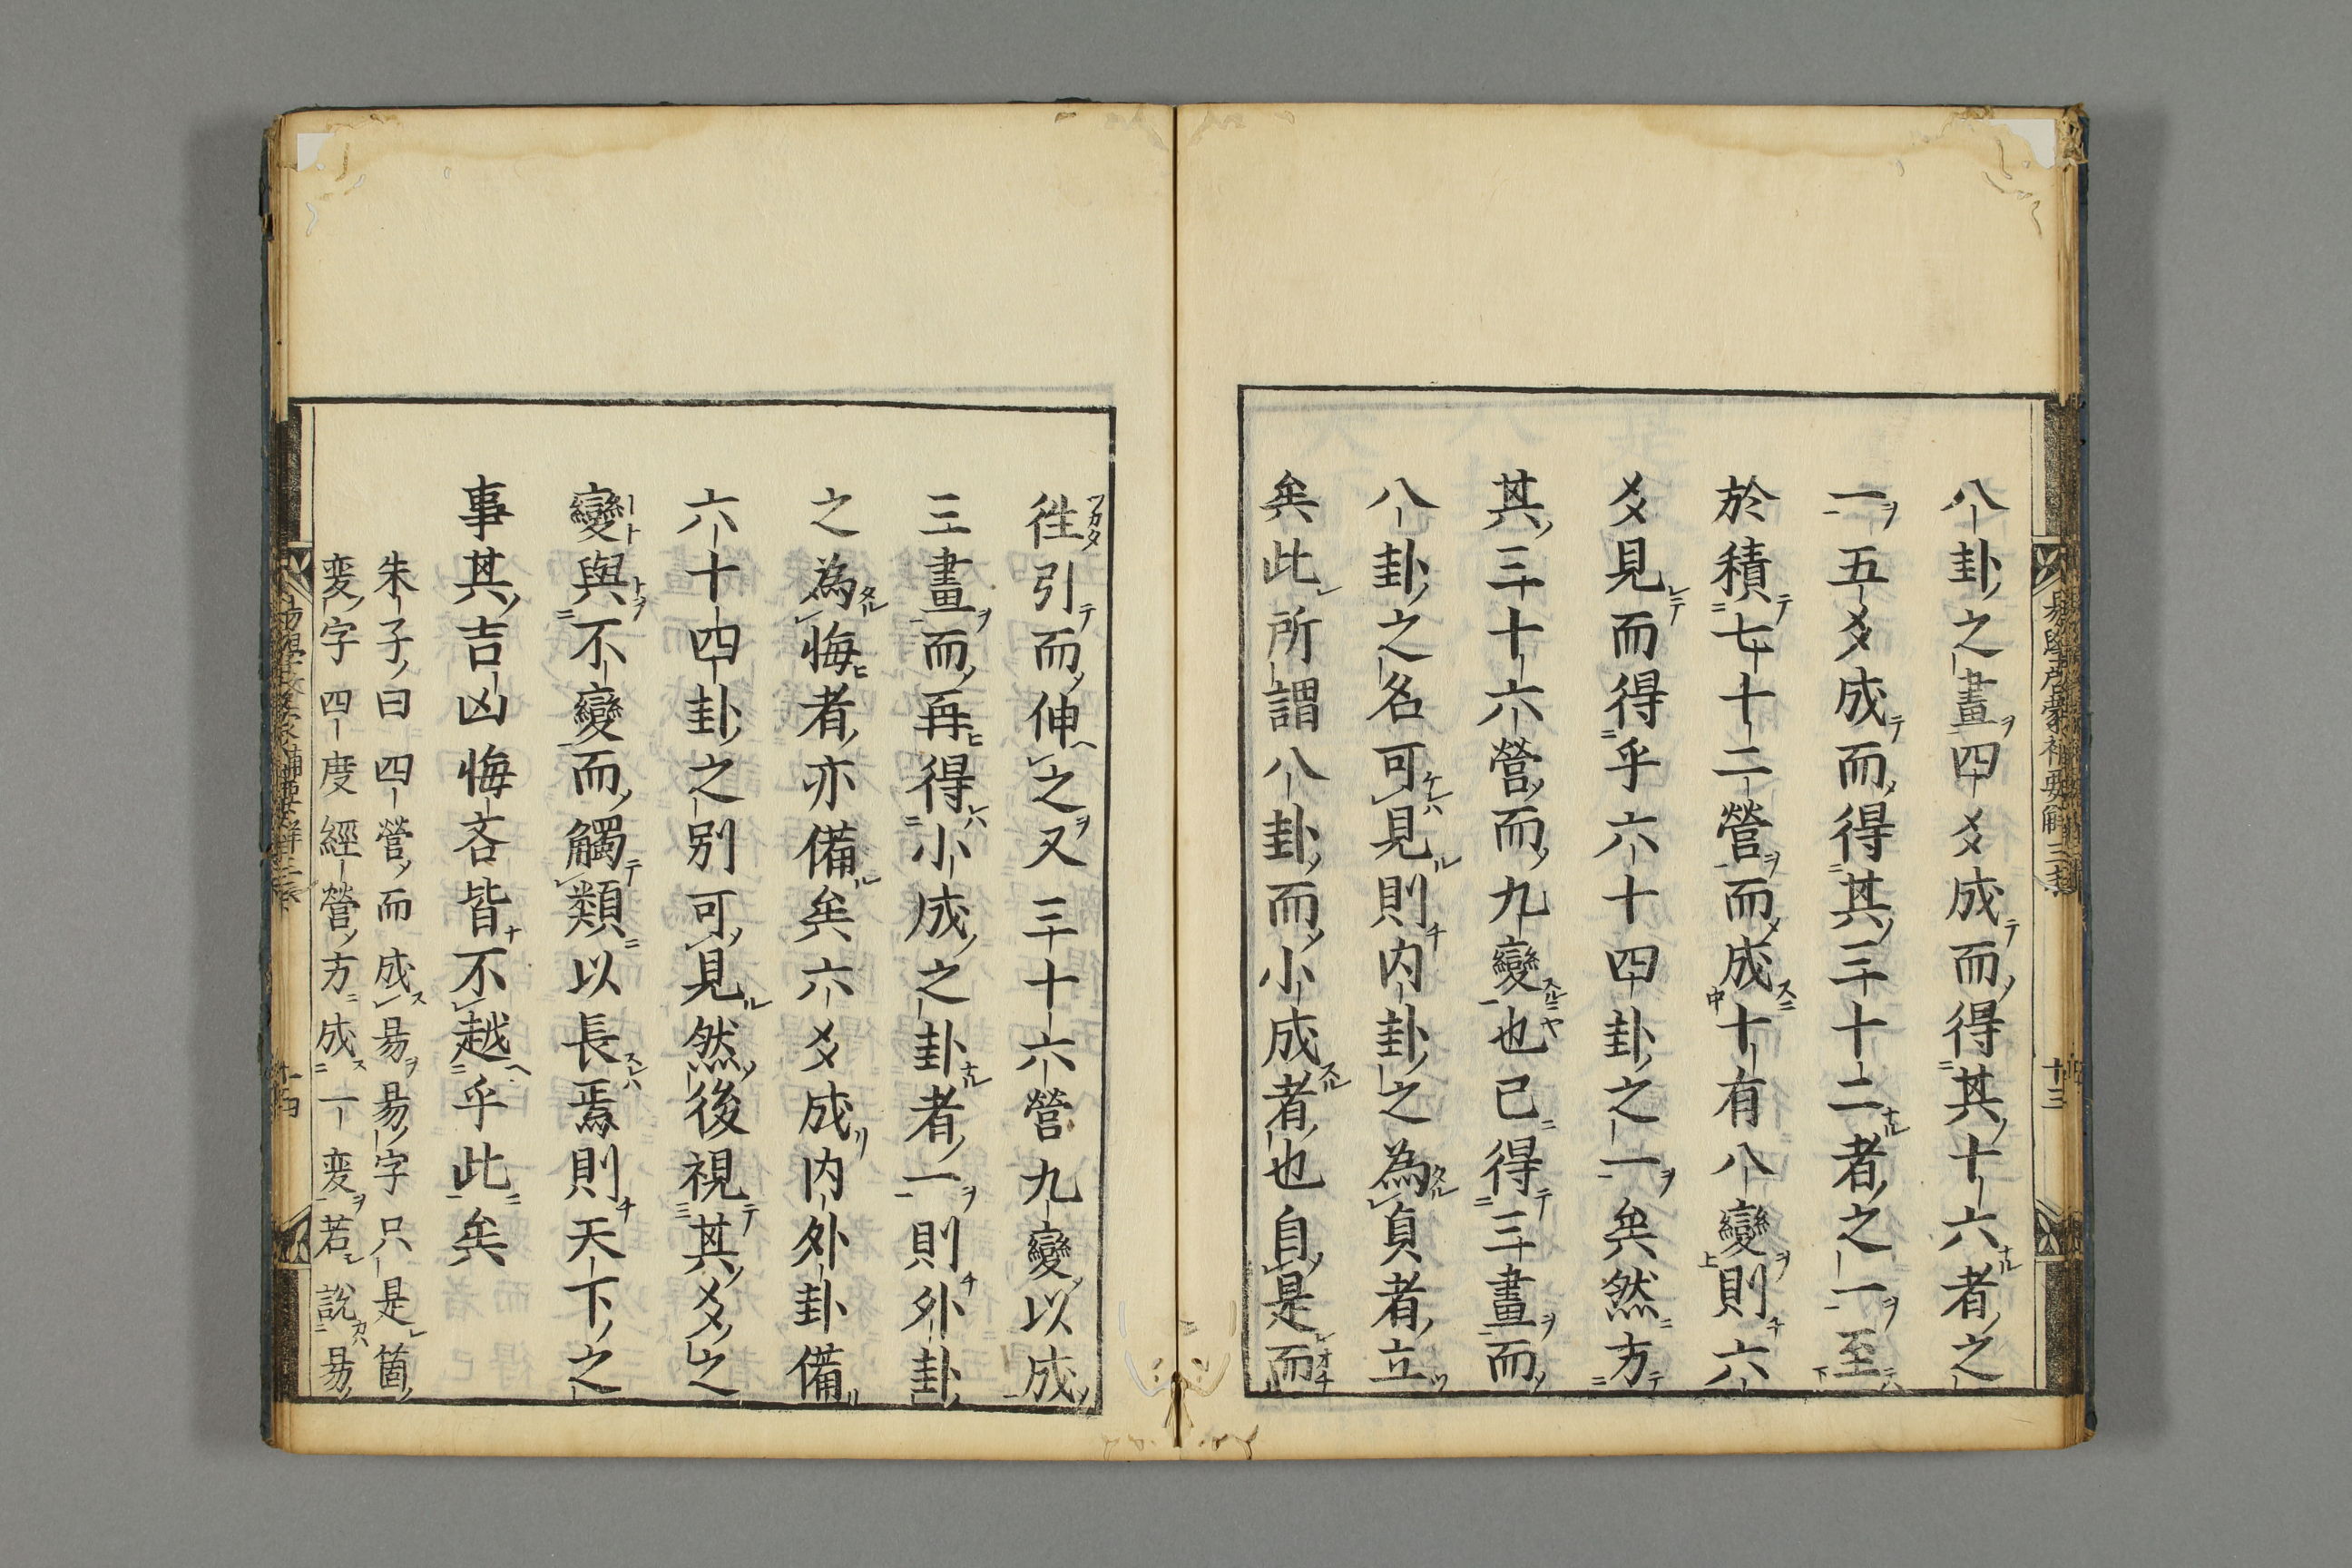 八卦之畫四爻成而得其十六者之
一五爻成而得其三十二者之一至
於積七十二營而成十有八變則六
爻見而得乎六十四卦之一矣然方
其三十六營而九變也已得三畫而
八卦之名可見則内卦之為貞者立
矣此所謂八卦而小成者也自是而
徃引而伸之又三十六營九變以成
三畫而再得小成之卦者一則外卦
之為悔者亦備矣六爻成内外卦備
六十四卦之别可見然後視其爻之
變與不變而觸類以長焉則天下之
事其吉凶悔吝皆不越乎此矣
朱子曰四營而成易易字只是箇
変字四度經營方成一変若說易
十三
十四